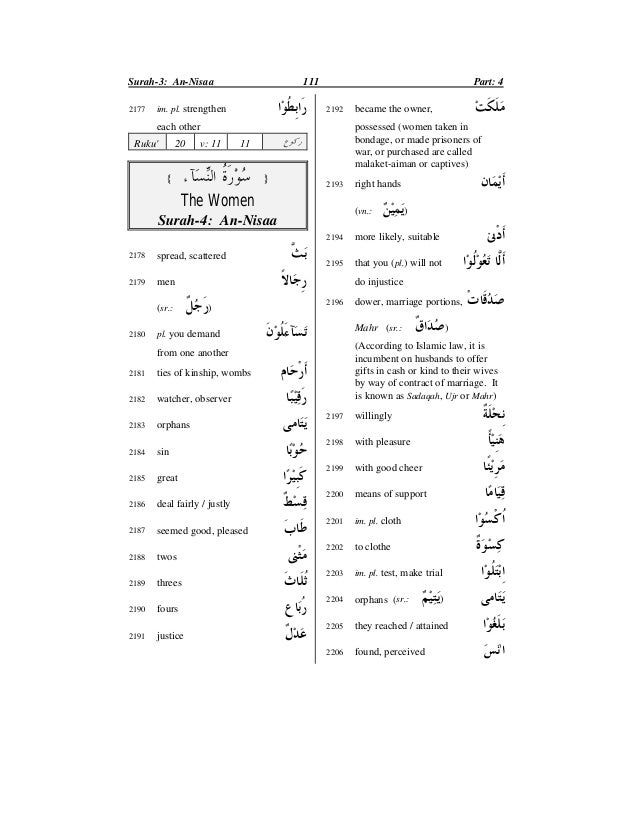 Surah-3: An-Nisaa 111 Part: 4
2177 im. pl. strengthen رَابِطُوْا
each other
Ruku' 20 v: 11 11 رکوع
{ سُوْرَةُ النِّسَآءِ }
The Women
Surah-4: An-Nisaa
2178 spread, scattered بَثَّ
2179 men رِجَالاً
(sr.: رَجُلٌ)
2180 pl. you demand تَسَآءَلُوْنَ
from one another
2181 ties of kinship, wombs أَرْحَام
2182 watcher, observer رَقِيْبًا
2183 orphans يَتَامٰى
2184 sin حُوْبًا
2185 great كَبِيْرًا
2186 deal fairly / justly قِسْطٌ
2187 seemed good, pleased طَابَ
2188 twos مَثْنٰى
2189 threes ثُلَاثَ
2190 fours رُبَاع
2191 justice عَدْلٌ
2192 became the owner, مَلَكَتْ
possessed (women taken in
bondage, or made prisoners of
war, or purchased are called
malaket-aiman or captives)
2193 right hands أَيْمَان
(vn.: يَمِيْنٌ)
2194 more likely, suitable أَدْنٰى
2195 that you (pl.) will not أَلَّا تَعُوْلُوْا
do injustice
2196 dower, marriage portions, صَدُقَاتْ
Mahr (sr.: صُدَاقٌ)
(According to Islamic law, it is
incumbent on husbands to offer
gifts in cash or kind to their wives
by way of contract of marriage. It
is known as Sadaqah, Ujr or Mahr)
2197 willingly نِحْلَةٌ
2198 with pleasure
2199 with good cheer
2200 means of support قِيَامًا
2201 im. pl. cloth اُكْسُوْا
2202 to clothe كِسْوَةٌ
2203 im. pl. test, make trial اِبْتَلُوْا
2204 orphans (sr.: يَتِيْمٌ) يَتَامٰى
2205 they reached / attained بَلَغُوْا
2206 found, perceived